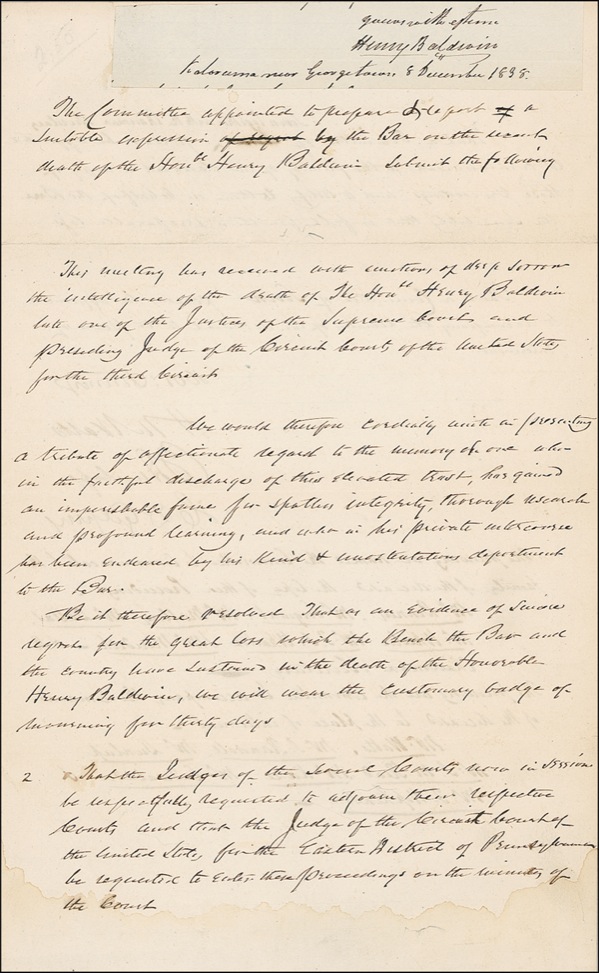 yours with esteem
Henry Baldwin
near Georgetown 8 December 1838.
The Committee appointed to prepare & report a
suitable expression of regret by the Bar on the recent
death of the Honble Henry Baldwin submit the following
This meeting has received with emotions of deep sorrow
the intelligence of the death of The Honble Henry Baldwin
late one of the Justices of the Supreme Court and
presiding Judge of the Circuit Courts of the United States
for the third Circuit
We would therefore cordially unite in presenting
a tribute of affectionate regard to the memory of one who
in the faithful discharge of this elevated trust, has gained
an imperishable fame for spotless integrity, thorough research
and profound learning, and who in his private intercourse
has been endeared by his kind & unostentatious deportment
to the Bar.
Be it therefore resolved That as an Evidence of Sincere
regret for the great loss which the Bench the Bar and
the country have sustained in the death of the Honorable
Henry Baldwin, we will wear the customary badge of
mourning for thirty days
2 That the Judges of the several Courts now in session
be respectfully requested to adjourn their respective
Courts and that the Judge of the Circuit Court of
the United States for the Eastern District of Pennsylvania
be requested to enter these proceedings on the minutes of
the Court